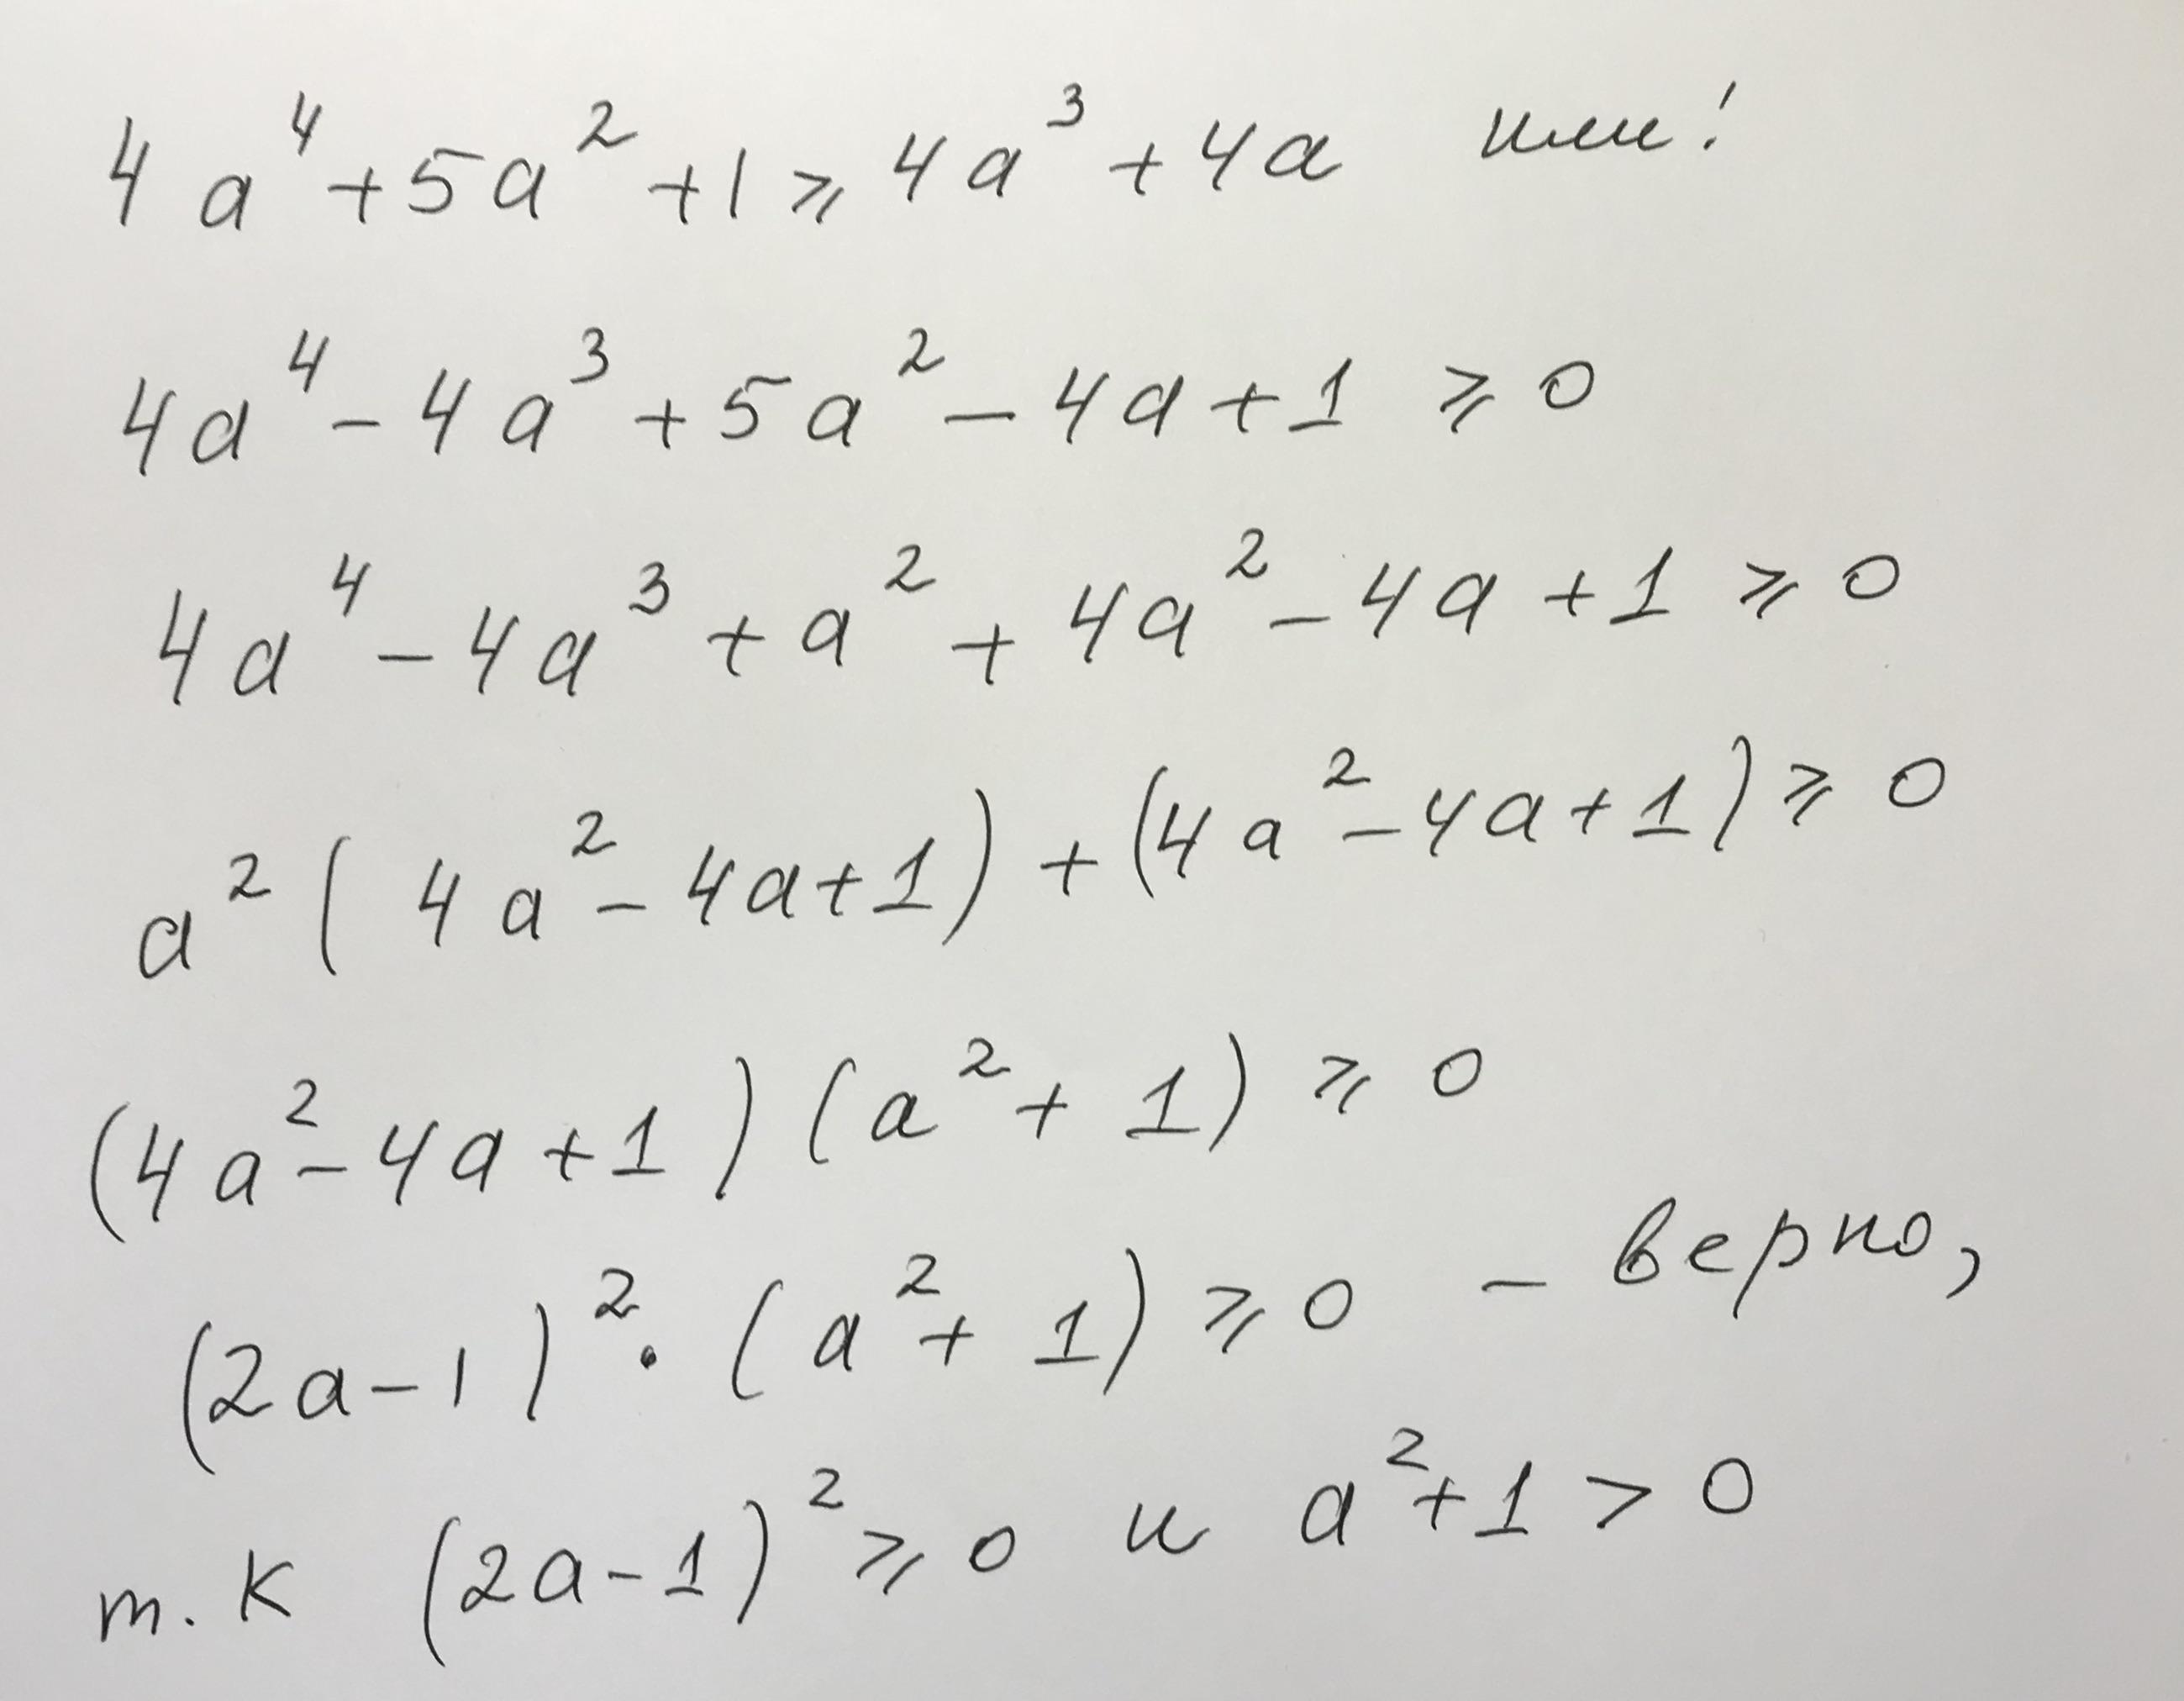 4a⁴+5a²+1⩾4a³+4a или:
4a⁴-4a³+5a²-4a+1⩾0
4a⁴-4a³+a²+4a²-4a+1⩾0
a²(4a²-4a+1)+(4a²-4a+1)⩾0
(4a²-4a+1)(a²+1)⩾0
(2a-1)²·(a²+1)⩾0 - верно,
т.к (2a-1)²⩾0 и a²+1>0